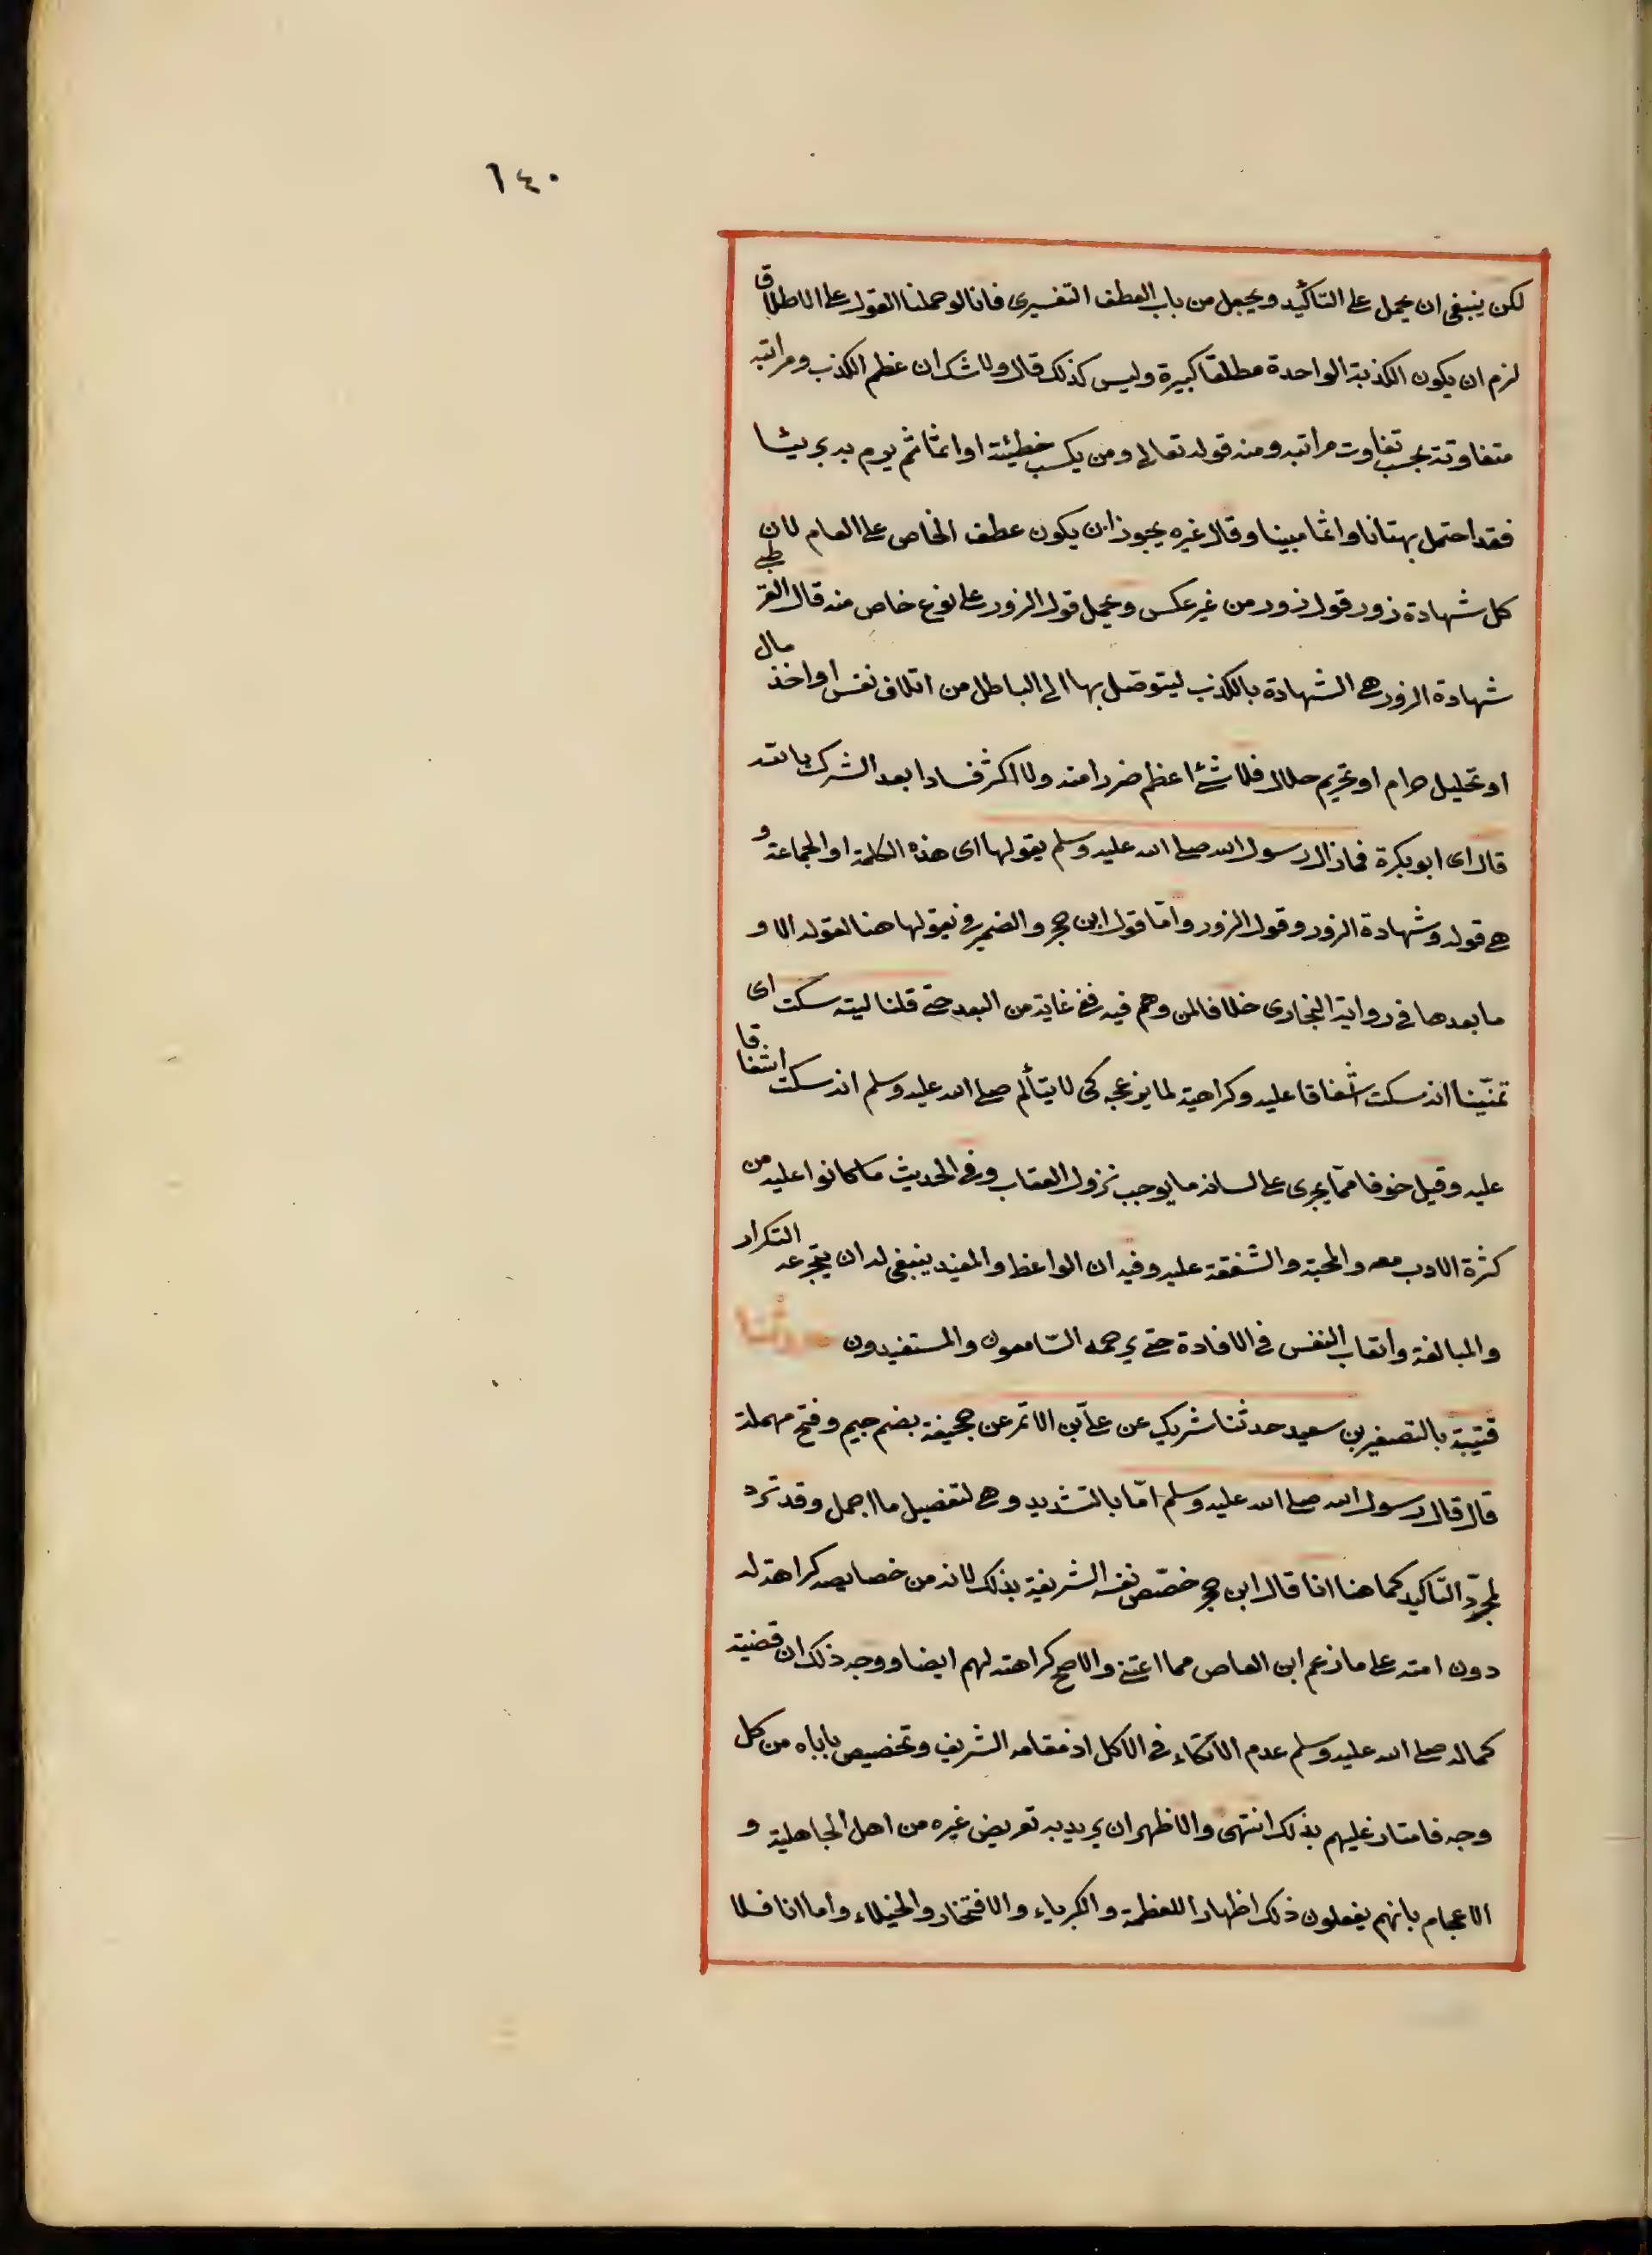 ١٤٠
لكن ينبغى ان يحمل على التأكيد ويجعل من باب العطف التفسيرى فانا لو حملنا القول على الاطلاق
لزم ان يكون الكذبة الواحدة مطلقا كبيرة وليس كذلك قال ولا شك ان عظم الكذب ومراتبه
متفاوتة بحسب تفاوت مراتبه ومنه قوله تعالى ومن يكسب خطيئة او اثما ثم يرم به بريئا
فقد احتمل بهتانا واثما مبينا وقال غيره يجوز ان يكون عطف الخاص على العام لان
كل شهادة زور قول زور من غير عكس ويحمل قول الزور على نوع خاص منه قال القرطبى
شهادة الزور هى الشهادة بالكذب ليتوصل بها الى الباطل من اتلاف نفس او اخذ مال
او تحليل حرام او تحريم حلال فلا شئ اعظم ضررا منه ولا اكثر فسادا بعد الشرك بالله
قال اى ابو بكرة فما زال رسول الله صلى الله عليه وسلم يقولها اى هذه الكلمة او الجماعة و
هى قوله وشهادة الزور وقول الزور واما قول ابن حجر والضمير فى يقولها هنا لقوله الا و
ما بعدها فى رواية البخارى خلافا لمن وهم فيه ففى غاية من البعد حتى قلنا ليته سكت اى
تمنّينا انه سكت اشفاقا عليه وكراهية لما يزعجه كى لا يتألم صلى الله عليه وسلم انه سكت اشفاقا
عليه وقيل خوفا مما يجرى على لسانه ما يوجب نزول العقاب وفى الحديث ما كانوا عليه من
كثرة الادب معه والمحبة والشفقة عليه وفيه ان الواعظ والمفيد ينبغى له ان يتجرعه التكرار
والمبالغة واتعاب النفس فى الافادة حتى يرحمه السّامعون والمستفيدون حدثنا
قتيبة بالتصغير بن سعيد حدثنا شريك عن على بن الاقمر عن جحيفة بضم جيم وفتح مهملة
قال قال رسول الله صلى الله عليه وسلم امّا بالتشديد وهى لتفصيل ما اجمل وقد ترد
لمجرّد التأكيد كما هنا انا قال ابن حجر خصّص نفسه الشريفة بذلك لانه من خصايصه كراهته له
دون امته على ما زعم ابن العاص مما اعتنى والاصح كراهته لهم ايضا ووجه ذلك ان قضية
كماله صلى الله عليه وسلم عدم الاتكاء فى الاكل اذ مقامه الشريف وتخصيص ياباه من كل
وجه فامتاز عليهم بذلك انتهى والاظهر ان يريد به تعريض غيره من اهل الجاهلية و
الاعجام بانهم يفعلون ذلك اظهارا للعظمة والكبرياء والافتخار والخيلاء واما انا فلا